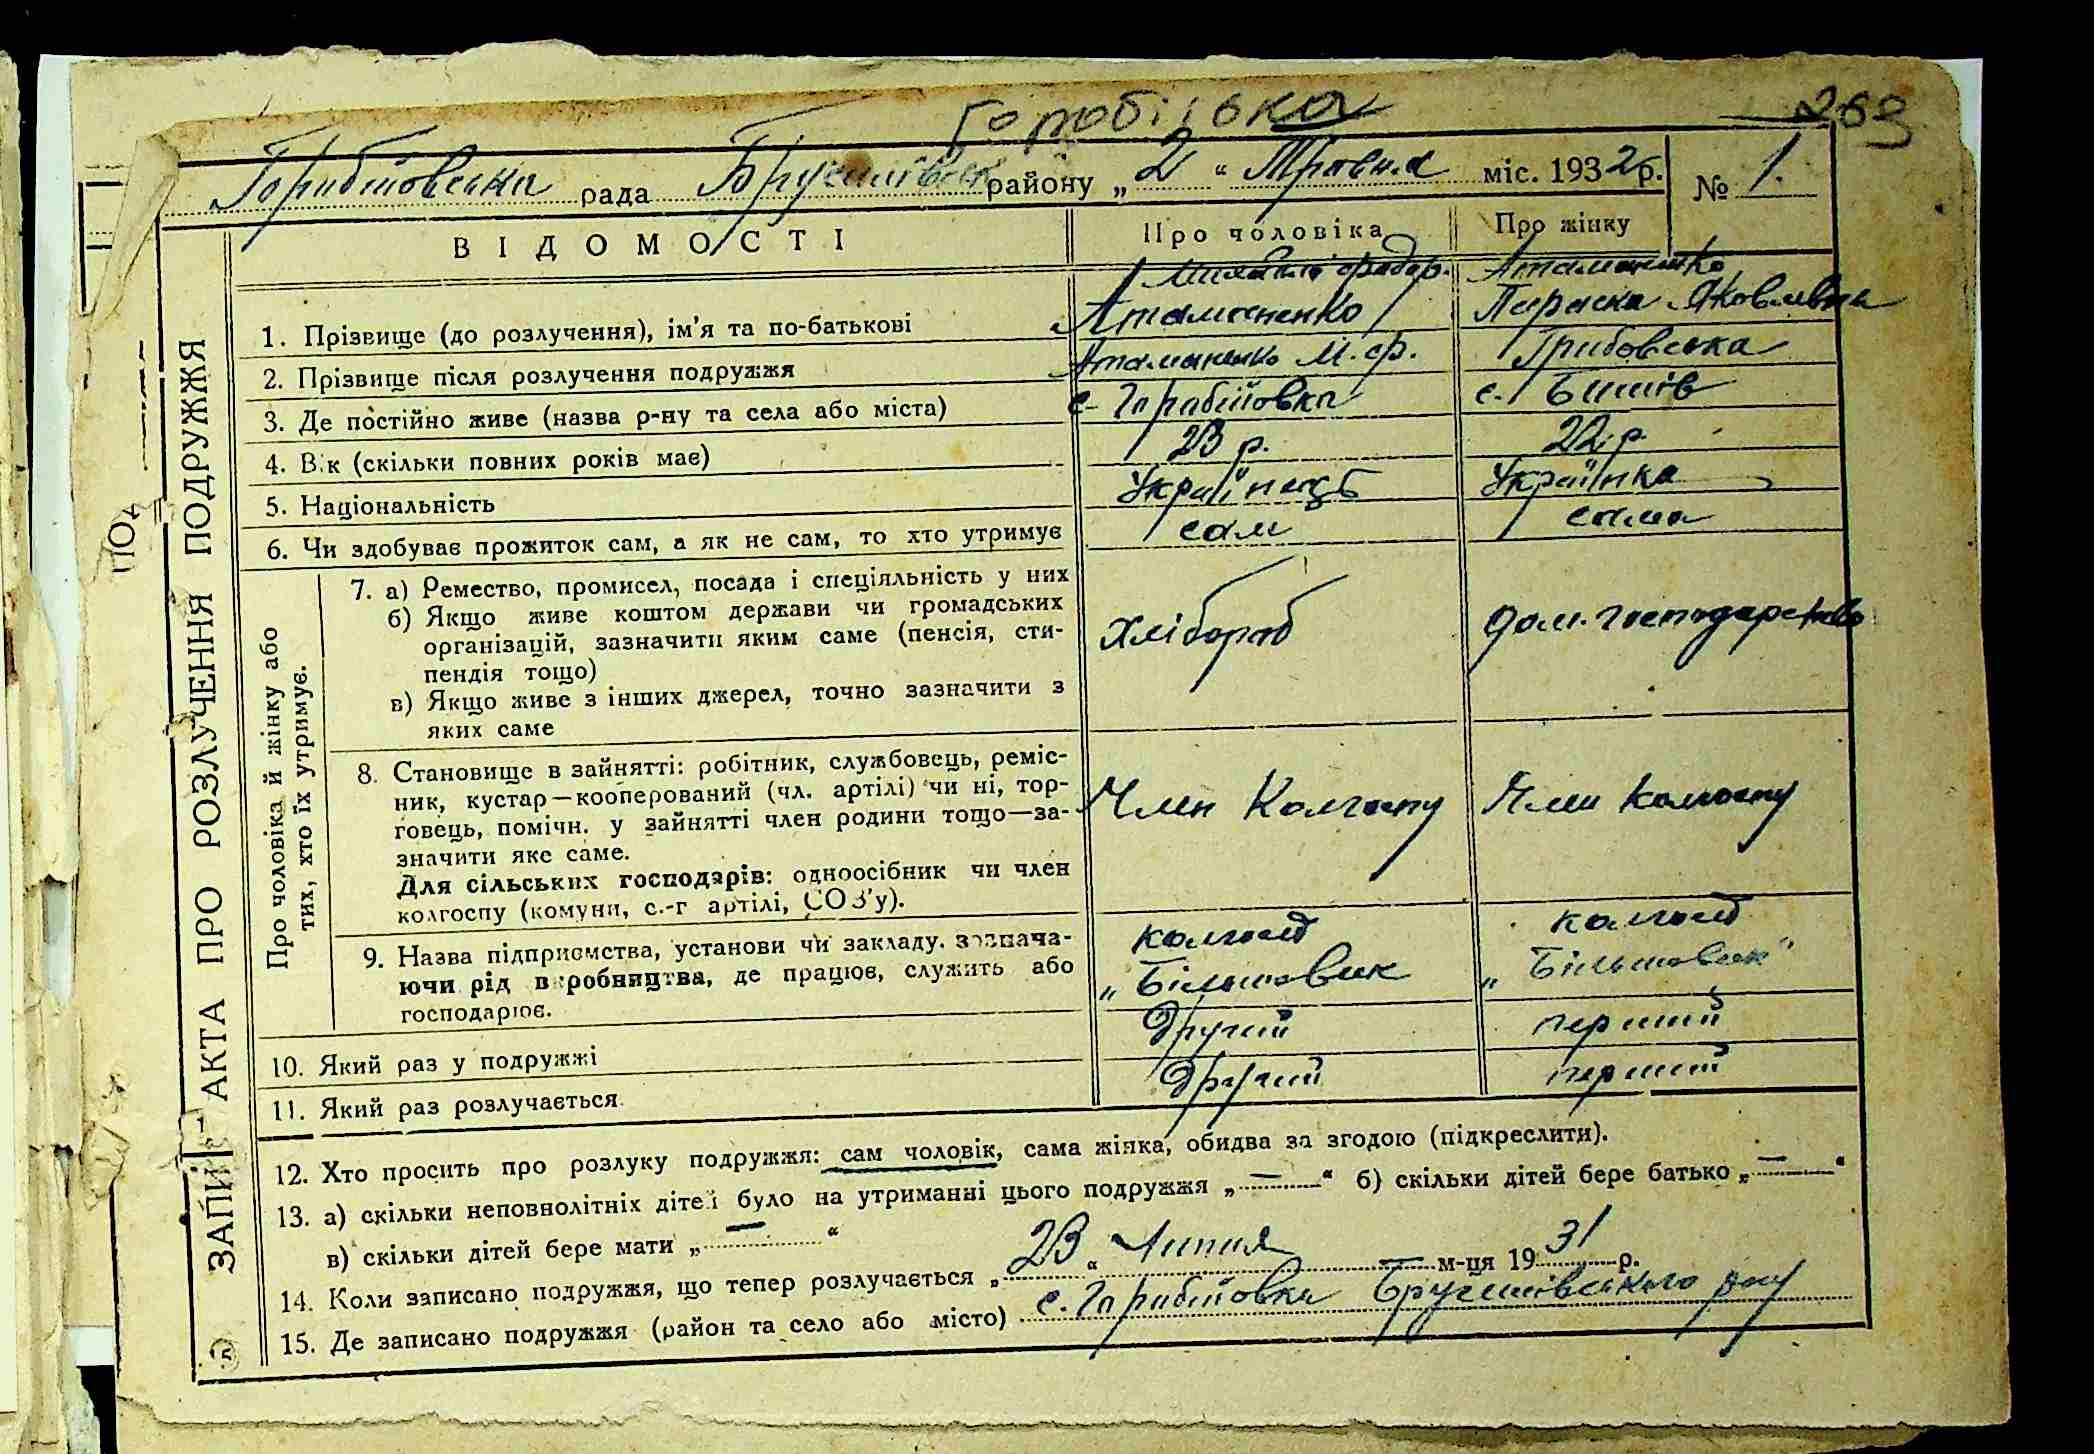 Горобіївка
269
Горабійовська рада Брусилівськ району „2“ Травня міс. 1932р. № 1.
ВІДОМОСТІ Про чоловіка Про жінку
1. Прізвище (до розлучення), ім'я та по-батькові Атаманенко Михайло Атаманенко Параска Яковлівна
2. Прізвище після розлучення подружжя Атаманенко М. Ф. Грибовська
3. Де постійно живе (назва р-ну та села або міста) с. Горабійовка с.
4. Вік (скільки повних років має) 23 р. 22 р.
5. Національність Українець Українка
6. Чи здобуває прожиток сам, а як не сам, то хто утримує сам сама
Про чоловіка й жінку або
тих, хто їх утримує.
7. а) Ремество, промисел, посада і спеціяльність у них
б) Якщо живе коштом держави чи громадських
організацій, зазначити яким саме (пенсія, сти-
пендія тощо)
в) Якщо живе з інших джерел, точно зазначити з
яких саме
Хлібороб дом. господарство
8. Становище в зайнятті: робітник, службовець, реміс-
ник, кустар—кооперований (чл. артілі) чи ні, тор-
говець, помічн. у зайнятті член родини тощо—за-
значити яке саме.
Для сільських господарів: одноосібник чи член
колгоспу (комуни, с.-г артілі, СОЗ'у).
Член Колгоспу Член Колгоспу
9. Назва підприємства, установи чи закладу. зазнача-
ючи рід виробництва, де працює, служить або
господарює.
колгосп колгосп
„Більшовик „Більшовик"
10. Який раз у подружжі Другий перший
11. Який раз розлучається Другий перший
12. Хто просить про розлуку подружжя: сам чоловік, сама жінка, обидва за згодою (підкреслити).
13. а) скільки неповнолітніх дітей було на утриманні цього подружжя „—“ б) скільки дітей бере батько „—“
в) скільки дітей бере мати „—“
14. Коли записано подружжя, що тепер розлучається „23“ Липня м-ця 1931 р.
15. Де записано подружжя (район та село або місто) с. Горабійовка Брусилівського р-ну
ЗАПИС АКТА ПРО РОЗЛУЧЕННЯ ПОДРУЖЖЯ